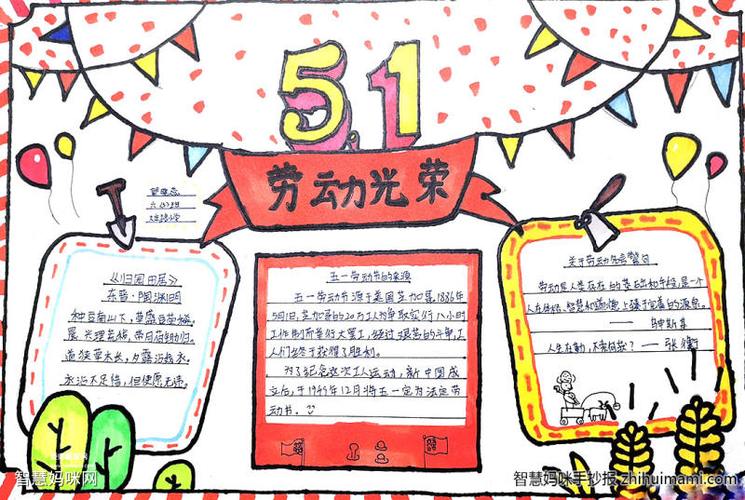 智慧妈咪网
5.1
劳动光荣
《归园田居》
东晋·陶渊明
种豆南山下,草盛豆苗稀。
晨兴理荒秽,带月荷锄归。
道狭草木长,夕露沾我衣。
衣沾不足惜,但使愿无违。
五一劳动节的来源
五一劳动节源于美国芝加哥1886年
5月1日,芝加哥的20万工人为争取实行八小时
工作制而举行大罢工,经过艰苦的斗争,工
人们终于获得了胜利。
为了纪念这次工人运动,新中国成
立后,于1949年12月将五一定为法定劳
动节。
关于劳动名言警句
劳动是人类存在的基础和手段,是一个
人在体格、智慧和道德上臻于完善的源泉。
——乌申斯基
人生在勤,不索何获?——张衡
智慧妈咪网
智慧妈咪手抄报 zhihuimami.com